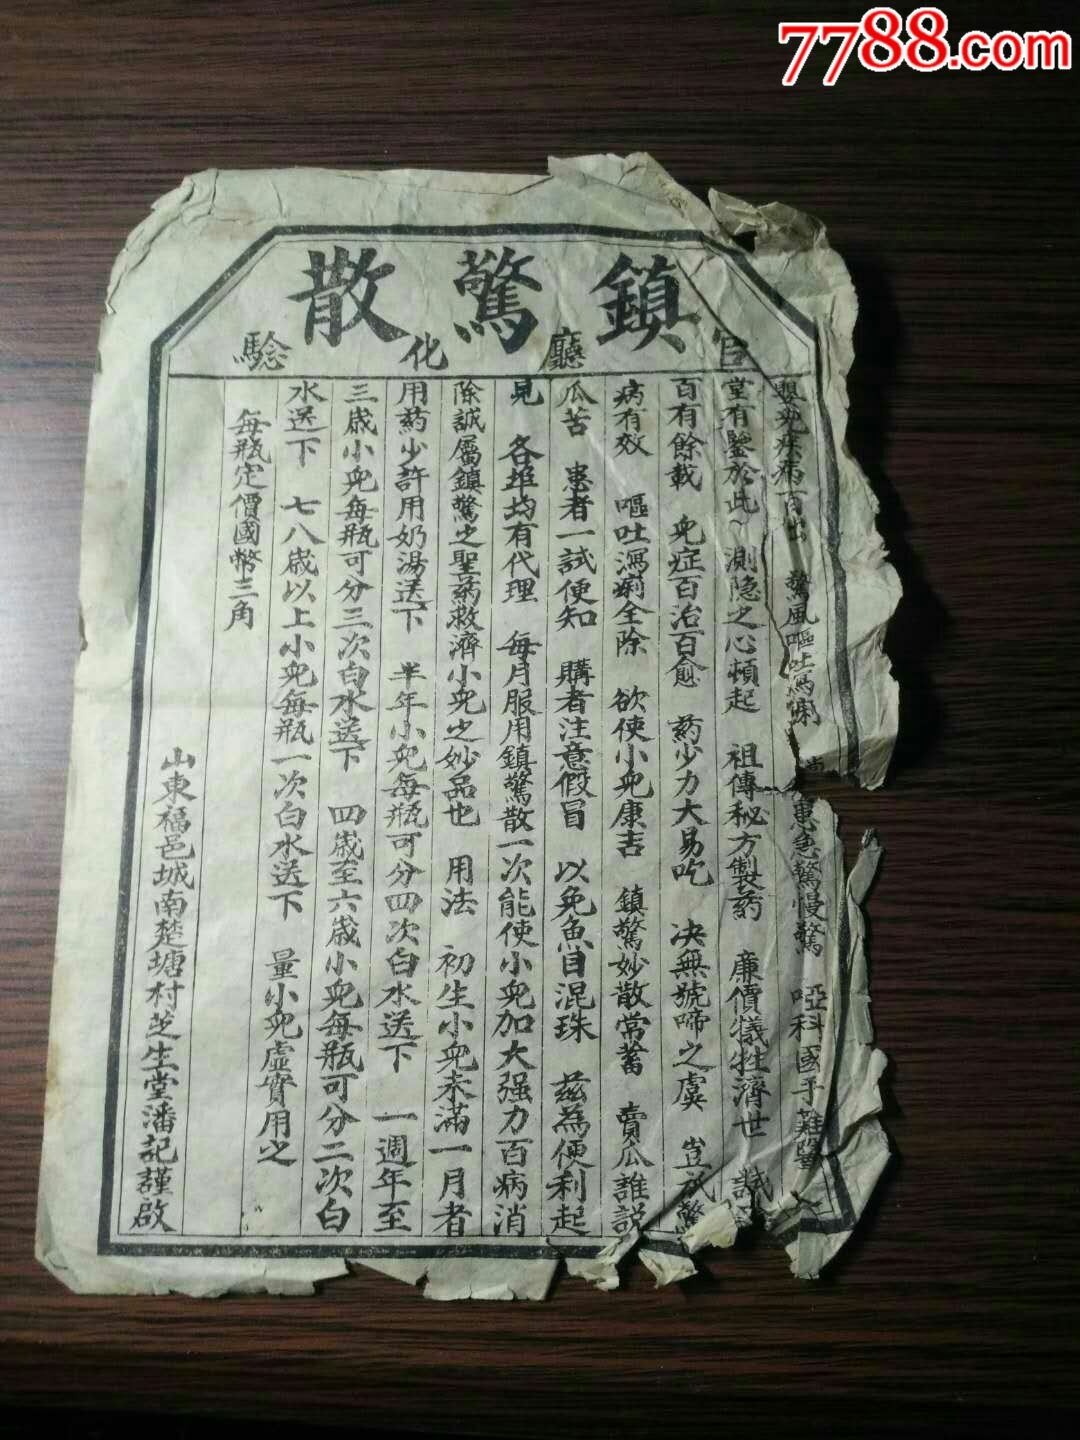 7788.com
鎮驚散
官廳化驗
嬰兒疾病百出 驚風嘔吐瀉痢 患急驚慢驚 啞科國手難醫
堂有鑒於此~測隐之心頓起 祖傳秘方製药 廉價犠牲濟世 試
百有餘載 兒症百治百愈 药少力大易吃 决無號啼之虞 豈
病有效 嘔吐瀉痢全除 欲使小兒康吉 鎮驚妙散常蓄 賣瓜誰説
瓜苦 患者一試便知 購者注意假冒 以免魚目混珠 兹為便利起
見 各埠均有代理 每月服用鎮驚散一次能使小兒加大强力百病消
除誠屬鎮驚之聖药救濟小兒之妙品也 用法 初生小兒未滿一月者
用葯少許用奶湯送下 半年小兒每瓶可分四次白水送下 一週年至
三歲小兒每瓶可分三次白水送下 四歲至六歲小兒每瓶可分二次白
水送下 七八歲以上小兒每瓶一次白水送下 量小兒虛實用之
每瓶定價國幣三角
山東福邑城南楚塘村芝生堂潘記謹啟